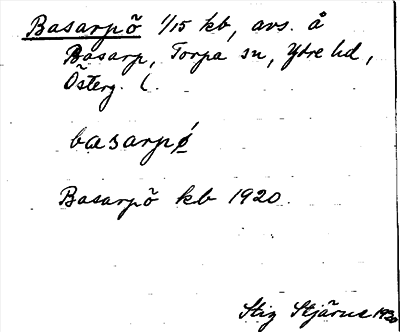 Basarpö 1/15 kb, avs. å
Basarp, Torpa sn, Ydre hd,
Österg. l.
basarpø
Basarpö kb 1920.
Stig Stjärne 1930